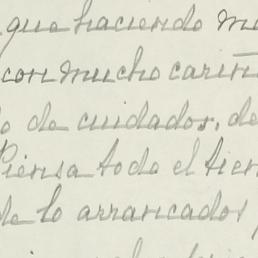 que haciendo
con mucho cariñ
o de cuidados, de
Piensa todo el tiem
de lo arrancados,